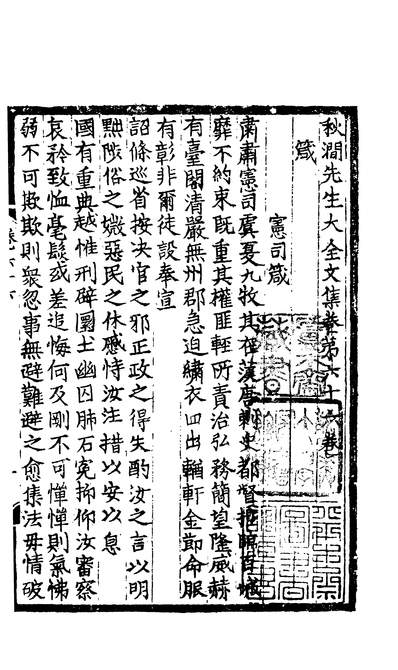 秋澗先生大全文集卷第六十六
箴
憲司箴
肅肅憲司虞夏九牧其在漢唐刺史都督控臨百城
靡不約束既重其權匪輕所責治弘務簡望隆威赫
有臺閣清嚴無州郡急迫繡衣四出輶軒金節命服
有彰非爾徒設奉宣
詔條巡省按決官之邪正政之得失酌汝之言以明
黜陟俗之媺惡民之休慼恃汝注措以安以息
國有重典越惟刑辟圜土幽囚肺石寃抑仰汝審察
哀矜致恤毫髮或差追悔何及剛不可憚憚則氣怫
弱不可欺欺則衆忽事無避難避之愈集法毋情破